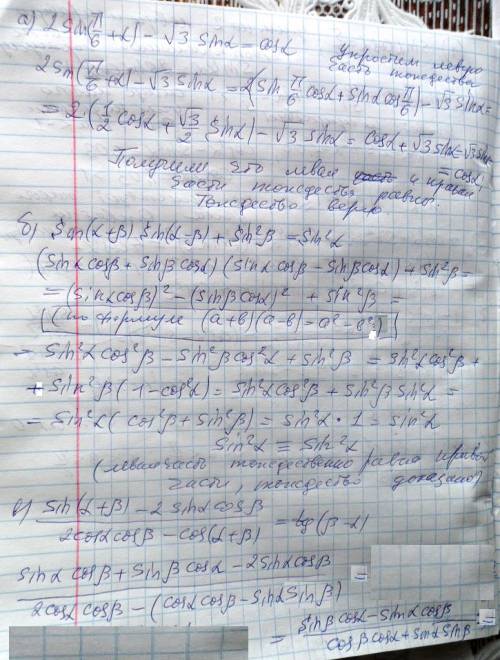 а) 2 sin(π/6 + α) − √3 sinα = cosα
Упростим левую
часть тождества
2 sin(π/6 + α) − √3 sinα = 2(sin π/6 cosα + sinα cos π/6) − √3 sinα =
= 2(1/2 cosα + √3/2 sinα) − √3 sinα = cosα + √3 sinα − √3 sinα
= cosα
Получили что левая и правая
части тождества равны.
Тождество верно
б) Sin(α+β) Sin(α−β) + Sin²β = Sin²α
(Sinα cosβ + Sinβ cosα)(sinα cosβ − sinβ cosα) + sin²β =
= (sinα cosβ)² − (sinβ cosα)² + sin²β =
[(по формуле (a+b)(a−b) = a² − b²)]
= Sin²α cos²β − Sin²β cos²α + sin²β = Sin²α cos²β +
+ Sin²β(1 − cos²α) = Sin²α cos²β + sin²β sin²α =
= Sin²α(cos²β + sin²β) = sin²α · 1 = sin²α
Sin²α = Sin²α
(левая часть тождественно равна правой
части, тождество доказано)
в) (sin(α+β) − 2 sinα cosβ) / (2cosα cosβ − cos(α+β)) = tg(β−α)
(sinα cosβ + sinβ cosα − 2sinα cosβ) / (2cosα cosβ − (cosα cosβ − sinα sinβ)) =
= (sinβ cosα − sinα cosβ) / (cosβ cosα + sinα sinβ) =